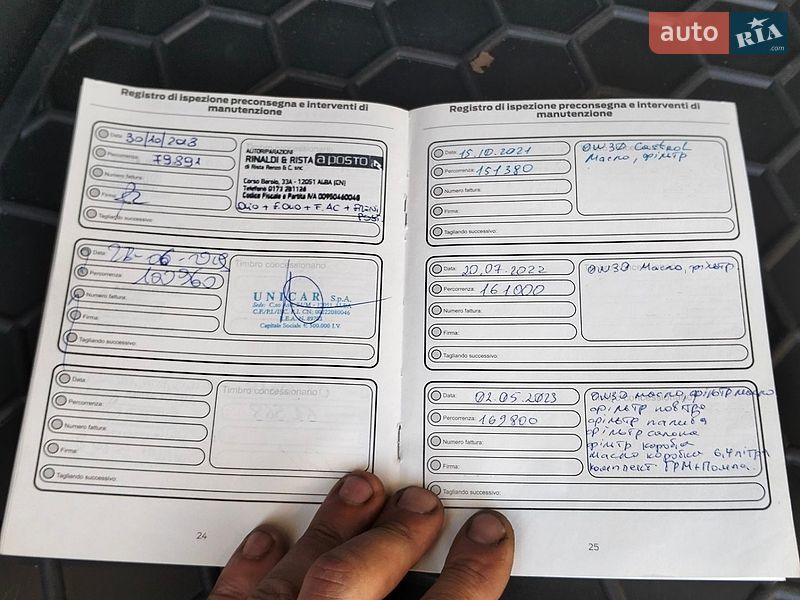 auto RIA .com
Registro di ispezione preconsegna e interventi di
manutenzione
Data: 30/10/2018
Percorrenza: 79891
Numero fattura:
Firma:
Tagliando successivo:
AUTORIPARAZIONI
RINALDI & RISTA a posto
di Rista Renzo & C. snc
Corso Barolo, 33A - 12051 ALBA (CN)
Telefono 0173 281126
Codice Fiscale e Partita IVA 00950460048
OLIO + F. OLIO + F. AC +
Data:
Percorrenza:
Numero fattura:
Firma:
Tagliando successivo:
Timbro concessionario
UNICAR S.p.A.
Capitale Sociale € 500.000 I.V.
Data:
Percorrenza:
Numero fattura:
Firma:
Tagliando successivo:
Timbro concessionario
24
Registro di ispezione preconsegna e interventi di
manutenzione
Data: 15.10.2021
Percorrenza: 151380
Numero fattura:
Firma:
Tagliando successivo:
0W30 Castrol
Масло, фільтр
Data: 20.07.2022
Percorrenza: 161000
Numero fattura:
Firma:
Tagliando successivo:
0W30 Масло, фільтр.
Data: 02.05.2023
Percorrenza: 169800
Numero fattura:
Firma:
Tagliando successivo:
0W30 масло фільтр масло
фільтр повітря
фільтр палива
фільтр салона
фільтр коробка
масло коробка 6,4 літра
комплект ГРМ+Помпа.
25